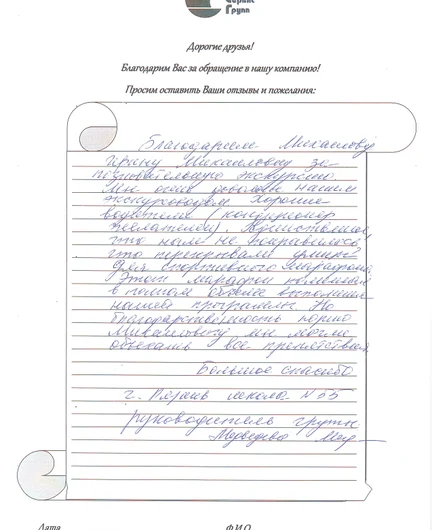 Сервис
Групп
Дорогие друзья!
Благодарим Вас за обращение в нашу компанию!
Просим оставить Ваши отзывы и пожелания:
Благодарим Михайлову
Ирину Михайловну за
познавательную экскурсию.
Мы очень довольны нашим
экскурсоводом. Хорошие
водители (кондиционер
желателен).
что нам не понравилось,
что перекрывали улицы
для спортивного марафона.
Этот марафон
в полном объёме выполнить
нашей программы. Но
Михайловну мы могли
объехать все препятствия.
Большое спасибо
г. Рязань школа №55
руководитель группы
Медведева
Дата
Ф.И.О.